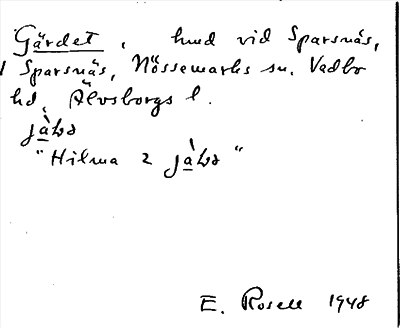 Gärdet, hmd vid Sparsnäs,
Sparsnäs, Nössemarks sn. Vedbo
hd, Älvsborgs l.
"Hilma
E. Rosell 1948